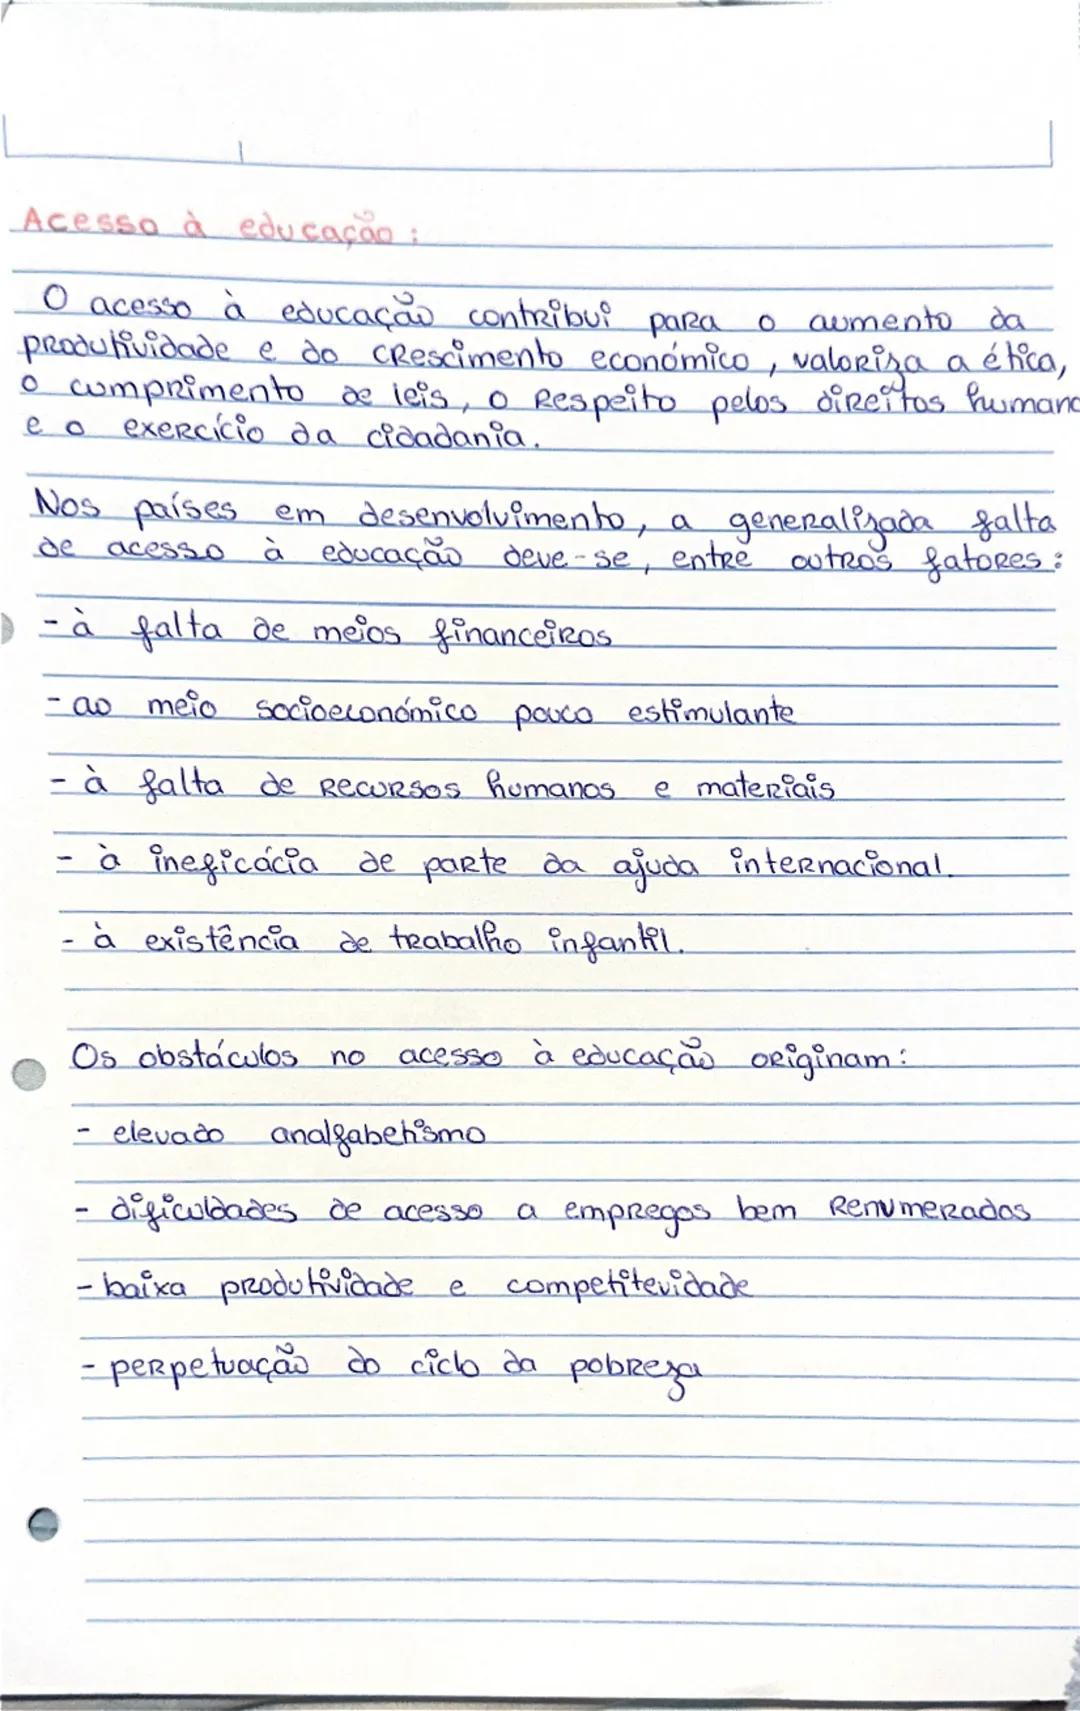 Acesso à educação :
O acesso à educação contribui para o aumento da
produtividade e do crescimento económico, valoriza a ética,
o cumprimento de leis, o respeito pelos direitos humano
e o exercício da cidadania.
Nos países em desenvolvimento, a generalizada falta
de acesso à educação deve-se, entre outros fatores:
- à falta de meios financeiros
- ao meio socioeconómico pouco estimulante
- à falta de recursos humanos e materiais
- à ineficácia de parte da ajuda internacional.
- à existência de trabalho infantil.
Os obstáculos no acesso à educação originam:
- elevado analfabetismo
- dificuldades de acesso a empregos bem renumerados
- baixa produtividade e competitevidade
- perpetuação do ciclo da pobreza